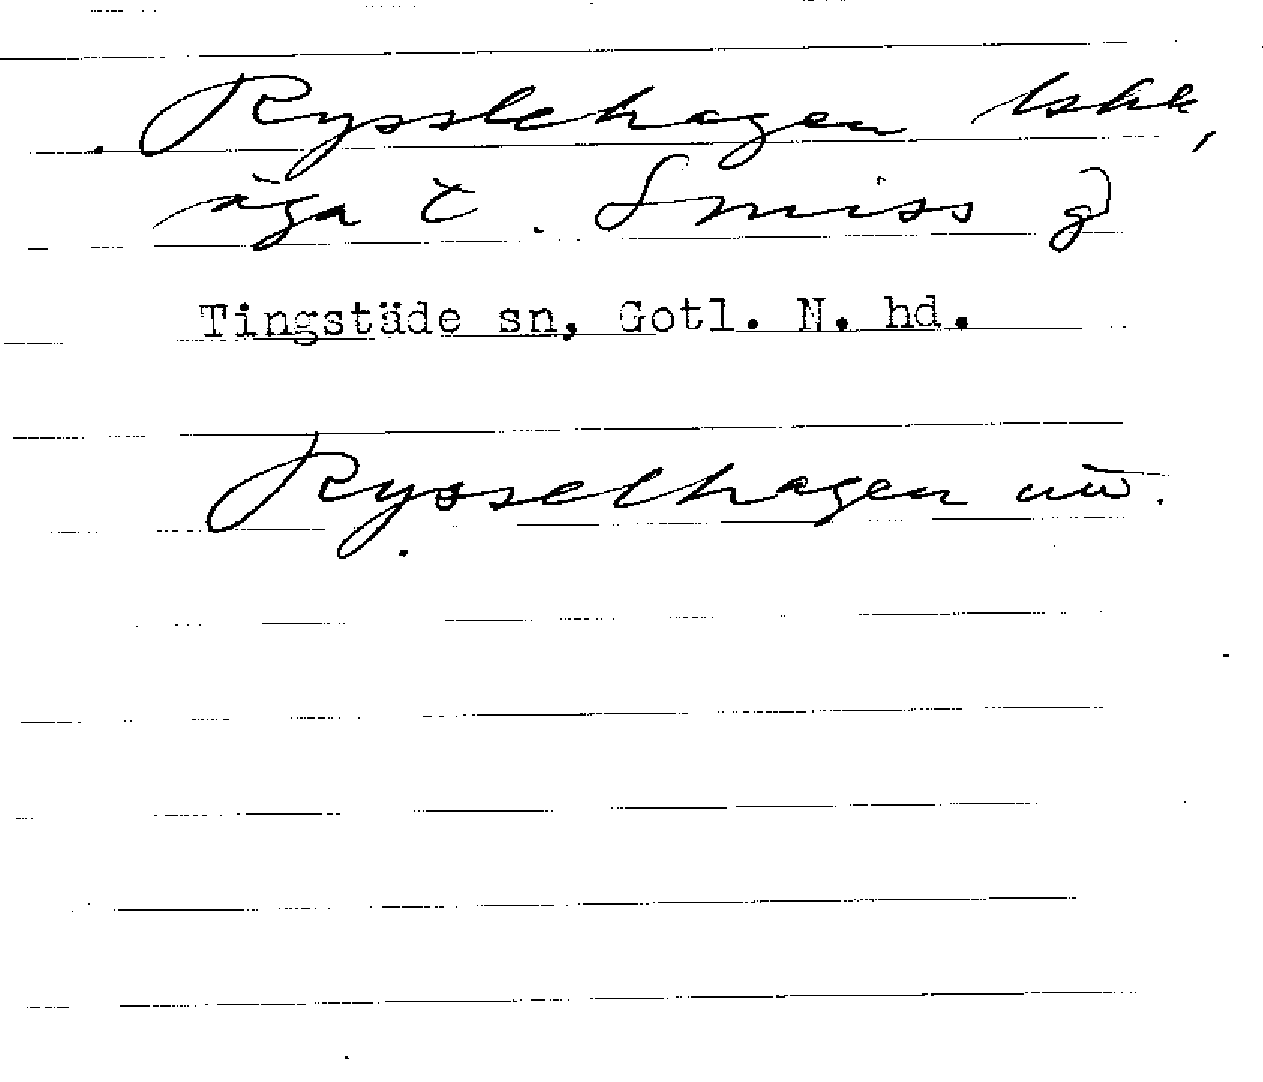 Rysslehagen
äga t. Smiss g
Tingstäde sn, Gotl. N. hd.
Rysselhagen